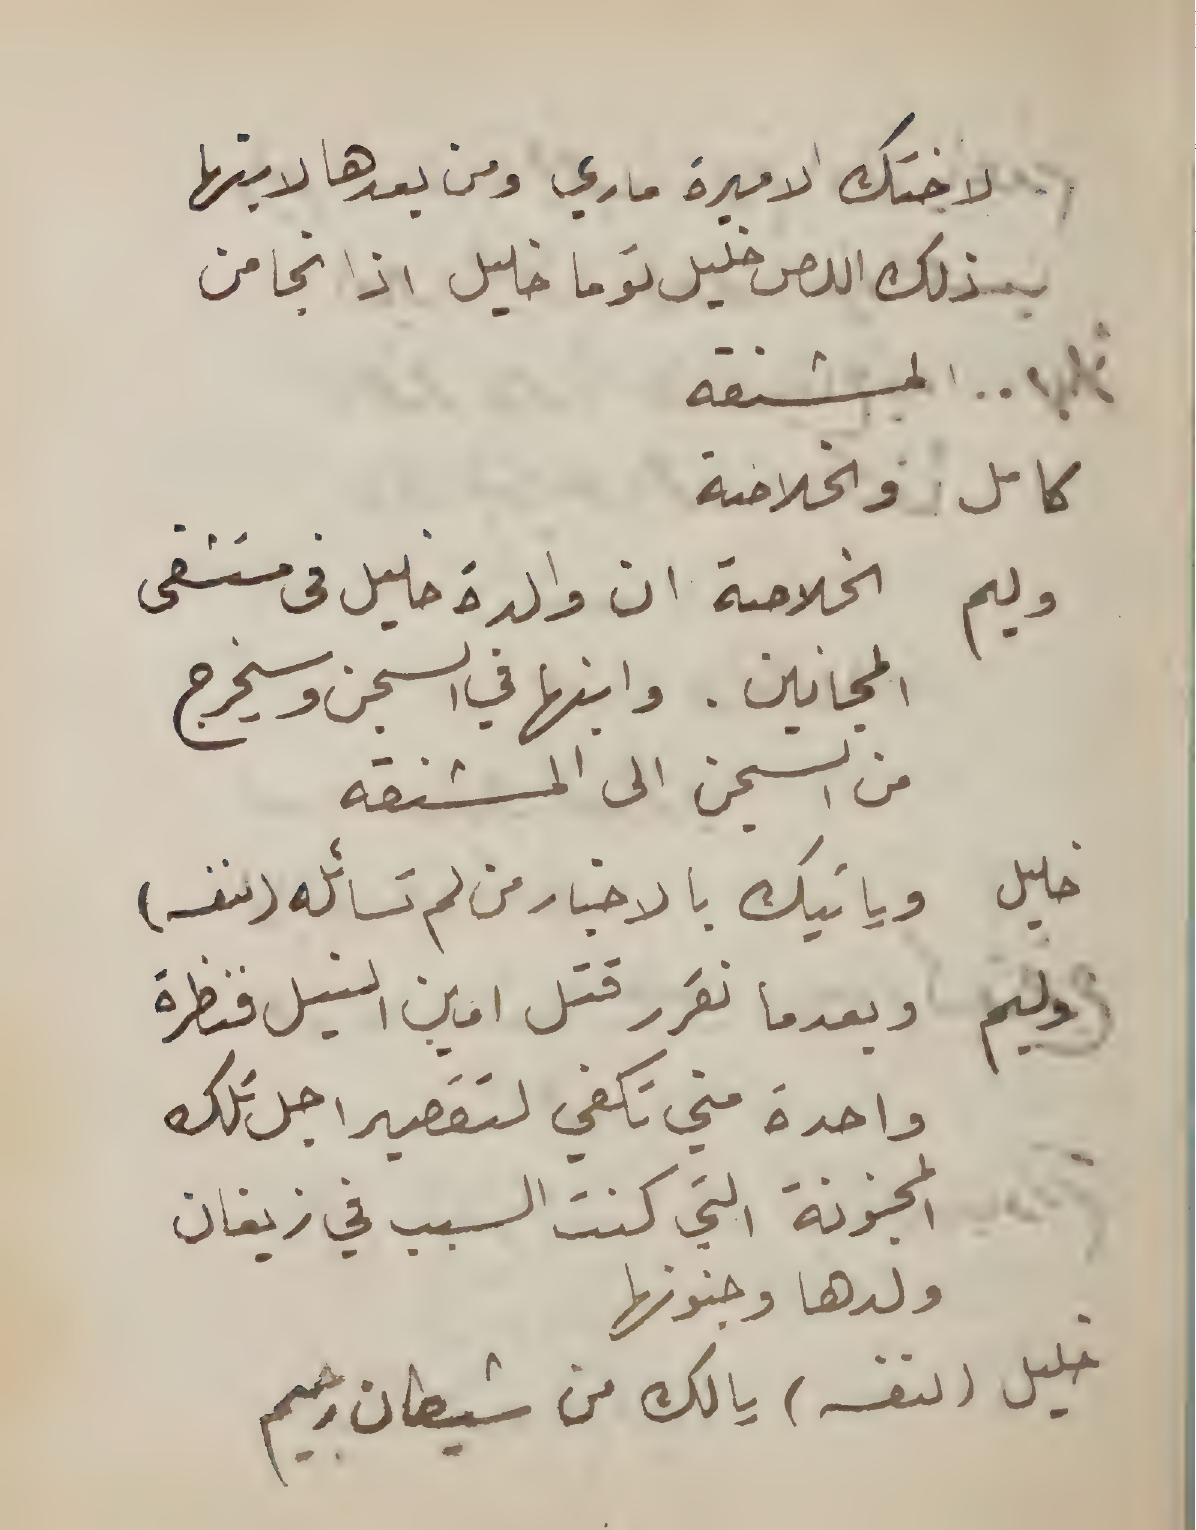 لاختك الاميرة ماري ومن بعدها لابنها
بعد ذلك اللص خليل توما خليل اذا نجا من
.. المشنقه
كامل والخلاصة
وليم الخلاصة ان والدة خليل فى مستشفى
المجانين . وابنها في السجن وسيخرج
من السجن الى المشنقه
خليل وياتيك بالاخبار من لم تسائله (لنفسه)
وليم وبعدما نقرر قتل امين النبيل فنظرة
واحدة مني تكفي لتقصير اجل تلك
المجنونة التي كنت السبب في زيغان
ولدها وجنونها
خليل (لنفسه) يالك من شيطان رجيم